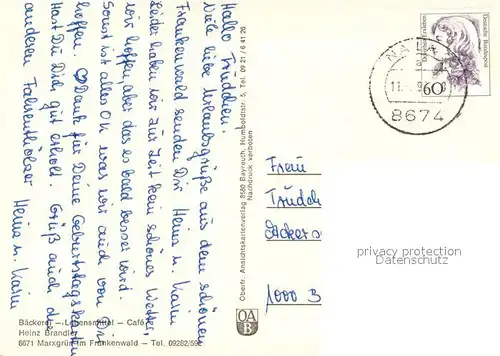 Hallo Trudchen!
Viele liebe Urlaubsgrüße aus dem schönen
Frankenwald senden Dir Heinz u. Karin
Leider haben wir zur Zeit kein schönes Wetter,
wir hoffen, aber das es bald besser wird.
Sonst ist alles OK was wir auch von Dir
hoffen. Dank für Deine Geburtstagskarte
Hast Du Dich gut erholt. Grüß auch die
anderen Falkenthaler Heinz u. Karin
Bäckerei – Lebensmittel – Café
Heinz Brandler
8671 Marxgrün im Frankenwald – Tel. 09282/592
Oberfr. Ansichtskartenverlag 8580 Bayreuth, Humboldtstr. 5, Tel. 09 21 / 6 41 26
Nachdruck verboten
OAB
Deutsche Bundespost
60
NAILA
8674
Frau
Trudch
Ackers
1000 B
privacy protection
Datenschutz